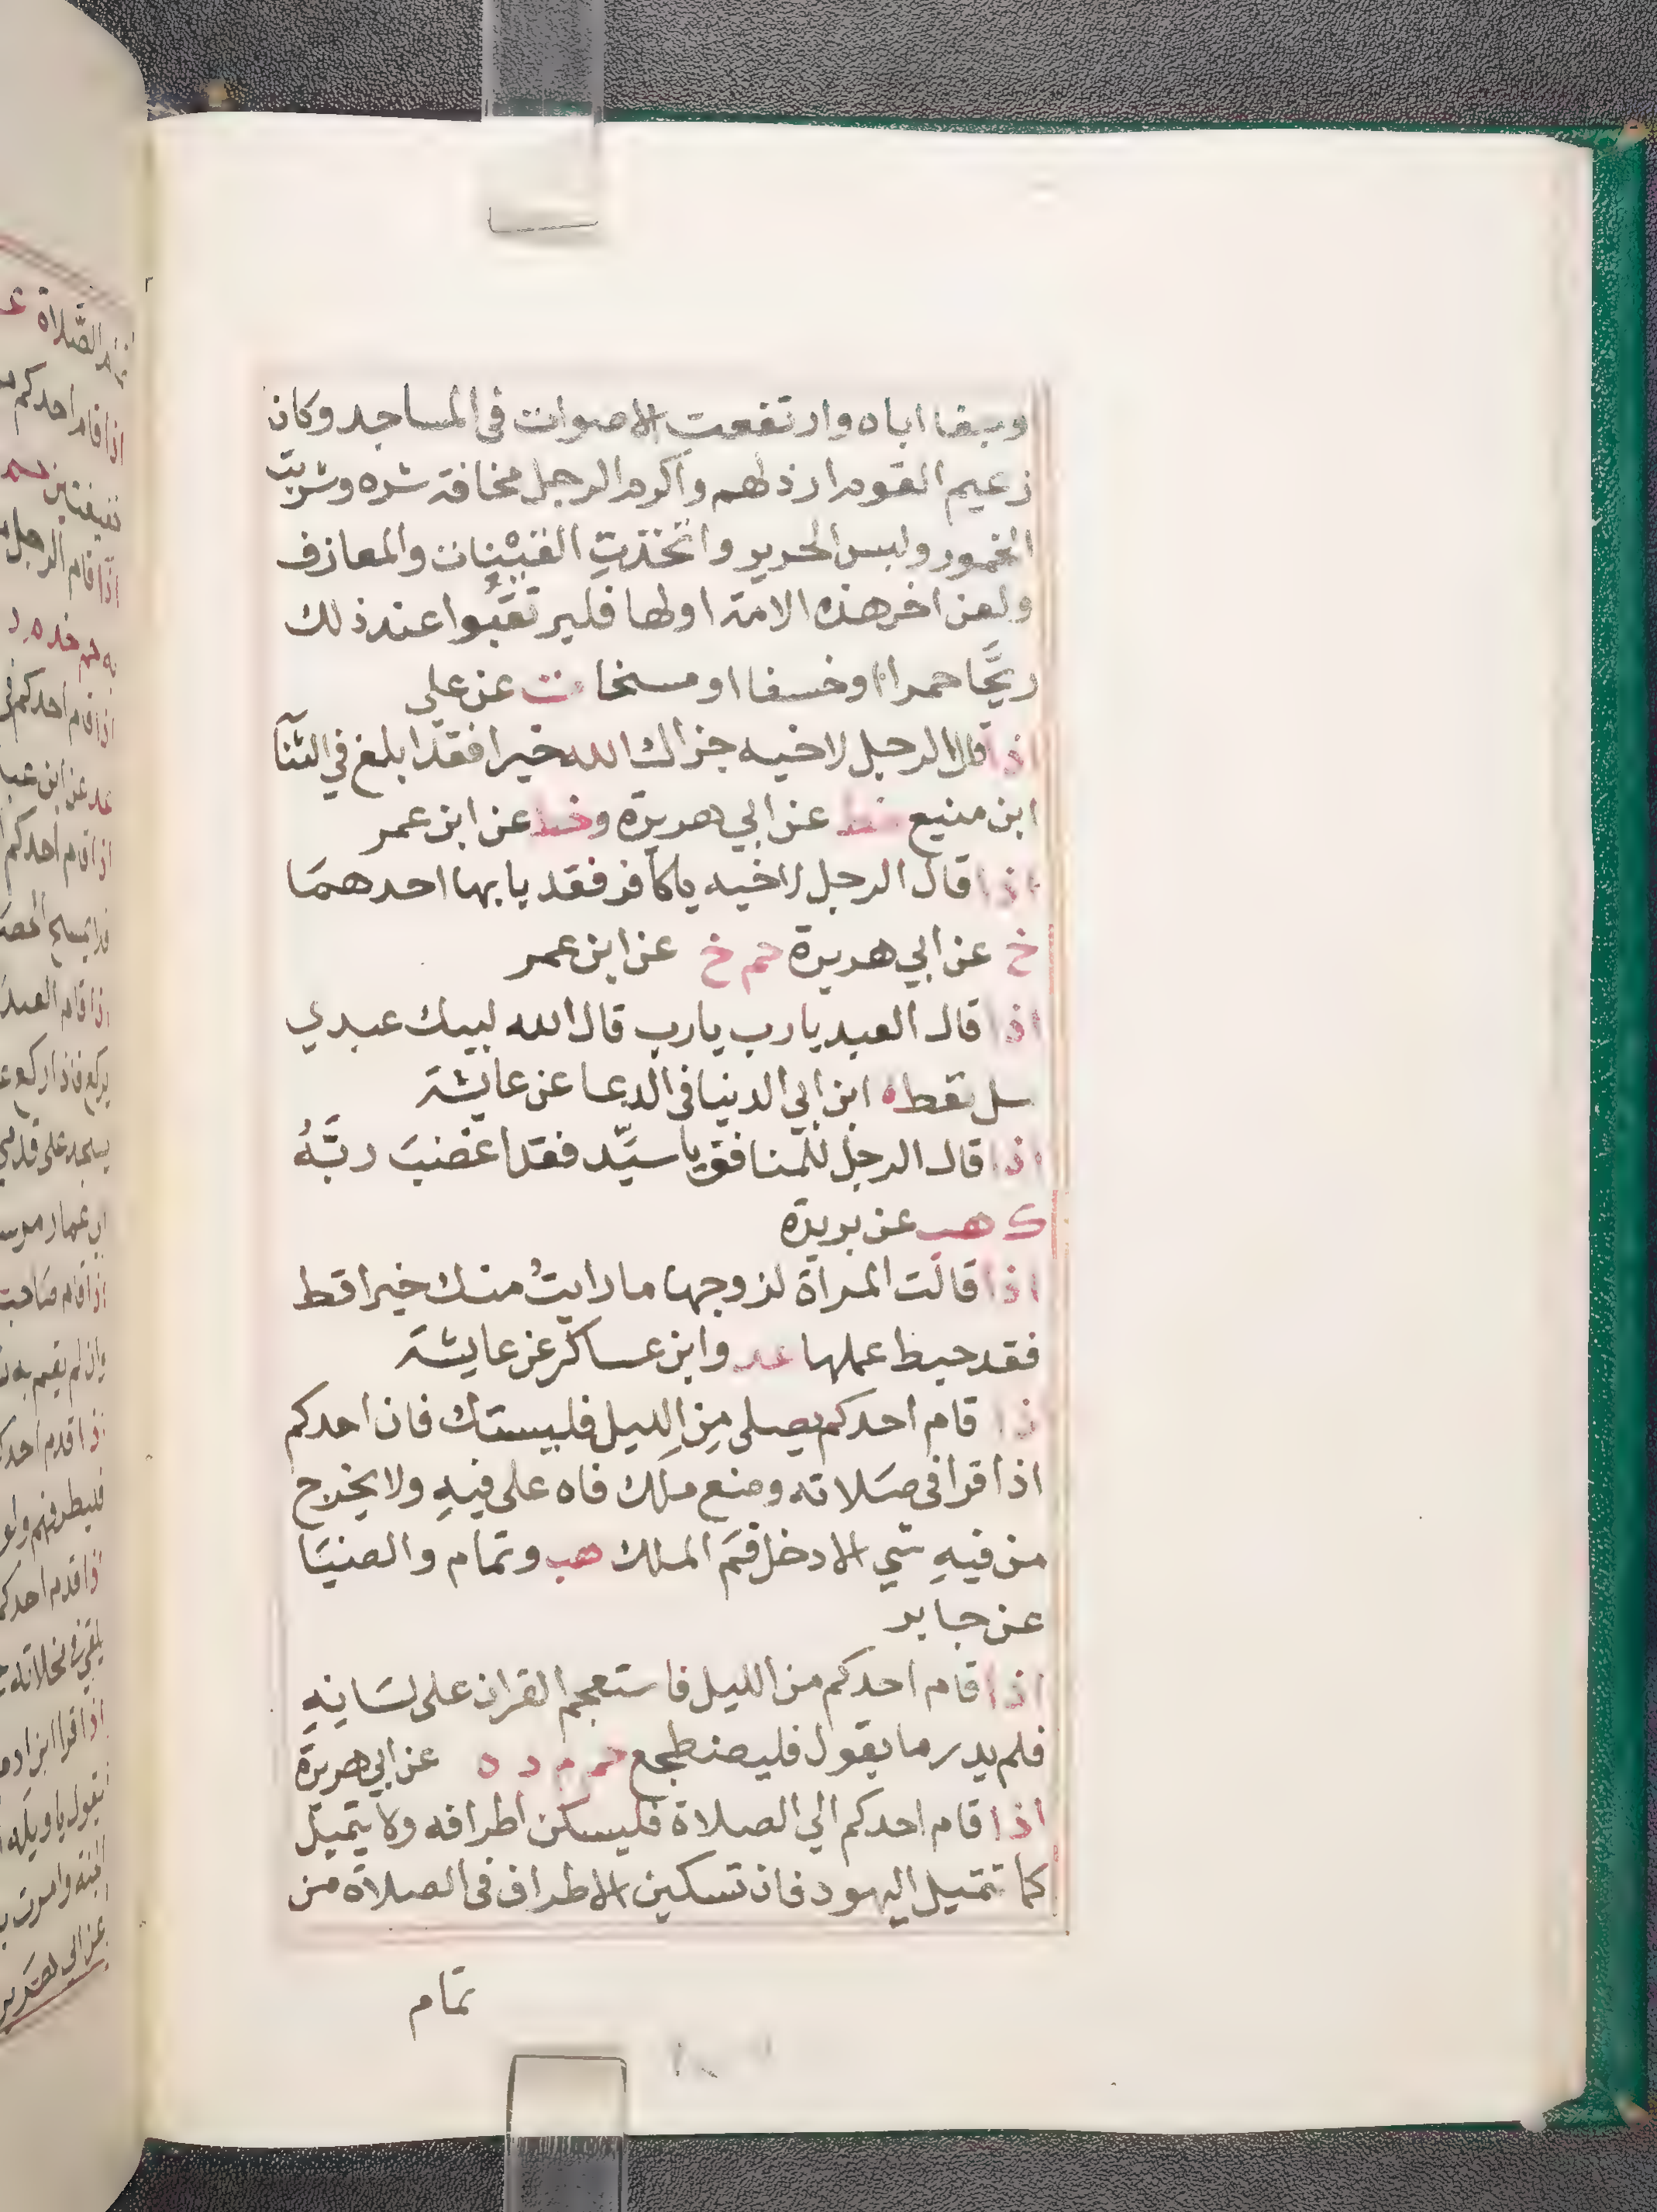 وجفا اباه وارتفعت الاصوات فى المساجد وكان
زعيم القوم ارذلهم واكرم الرجل مخافة شره وشربت
الخمور ولبس الحرير واتخذتِ القَيْنات والمعازف
ولعن اخر هذه الامة اولها فليرتقبوا عند ذلك
ريحًا حمرا او خسفا او مسخا ت عن على
اذا قال الرجل لاخيه جزاك الله خيرا فقد ابلغ في الثنآ
ابن منيع خط عن ابي هريرة وخط عن ابن عمر
اذا قال الرجل لاخيه ياكافر فقد يابها احدهمَا
خ عن ابي هريرة حم خ عن ابن عمر
اذا قال العبد يارب يارب قال الله لبيك عبدي
سل تعطه ابن ابي الدنيا فى الدعا عن عايشة
اذا قال الرجل للمنافق ياسيّد فقد اغضبَ ربَّهُ
ك هب عن بريدة
اذا قالت المراة لزوجها مارايتُ منك خيرا قط
فقد حبط عملها عد وابن عساكر عن عايشة
اذا قام احدكم يصلى مِن الليل فليستك فان احدكم
اذا قرا فى صَلاته وضع ملك فاه على فيهِ ولا يخرج
من فيهِ شي الا دخل فمَ الملك هب وتمام والضيَا
عن جابر
اذا قام احدكم من الليل فاستعجم القران على لسَانهِ
فلم يدر ما يقول فليضطجع حم م د ه عن ابي هريرة
اذا قام احدكم الي الصلاة فليسكن اطرافه ولا يتميل
كما تتميل اليهود فان تسكين الاطراف فى الصلاة من
تمام